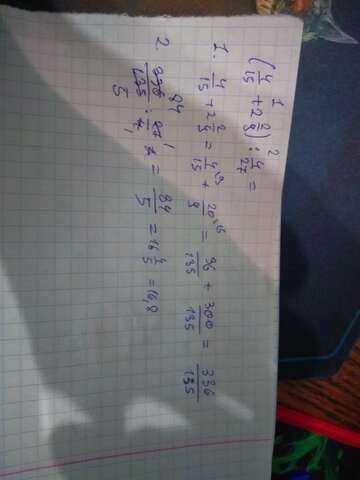 (4/15 +¹ 2 2/9) :² 4/27 =
1. 4/15 + 2 2/9 = 4/15 ⁹ + 20/9 ¹⁵ = 36/135 + 300/135 = 336/135
2. 336/135 · 27/4 = 84/5 = 16 4/5 = 16,8